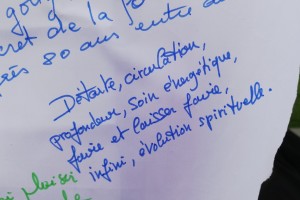 cret de la
près 80 ans entre d
Détente, circulation,
profondeur, soin énergétique,
faire et laisser faire,
infini, évolution spirituelle.